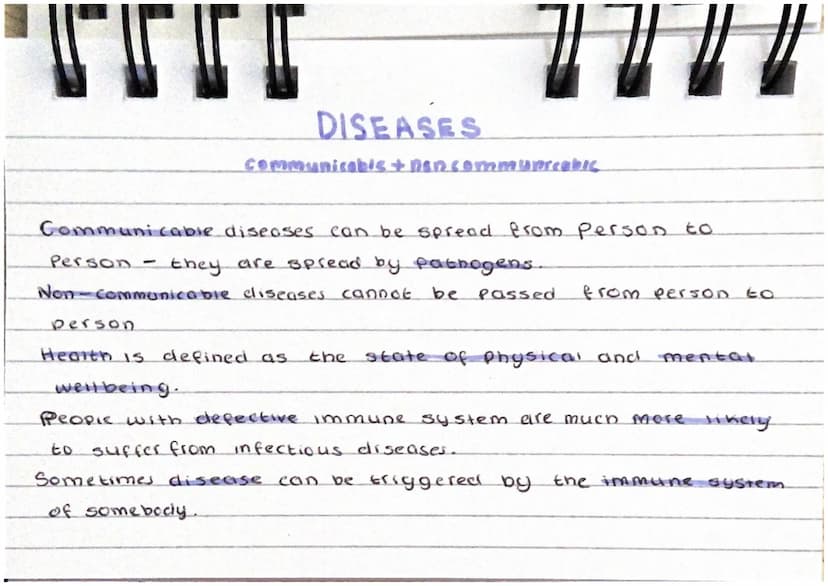 DISEASES
communicable + non communicable
Communicable diseases can be spread from person to
person - they are spread by pathogens.
Non-communicable diseases cannot be passed from person to
person
Health is defined as the state of physical and mental
wellbeing.
People with defective immune system are much more likely
to suffer from infectious diseases.
Sometimes disease can be triggered by the immune system
of somebody.